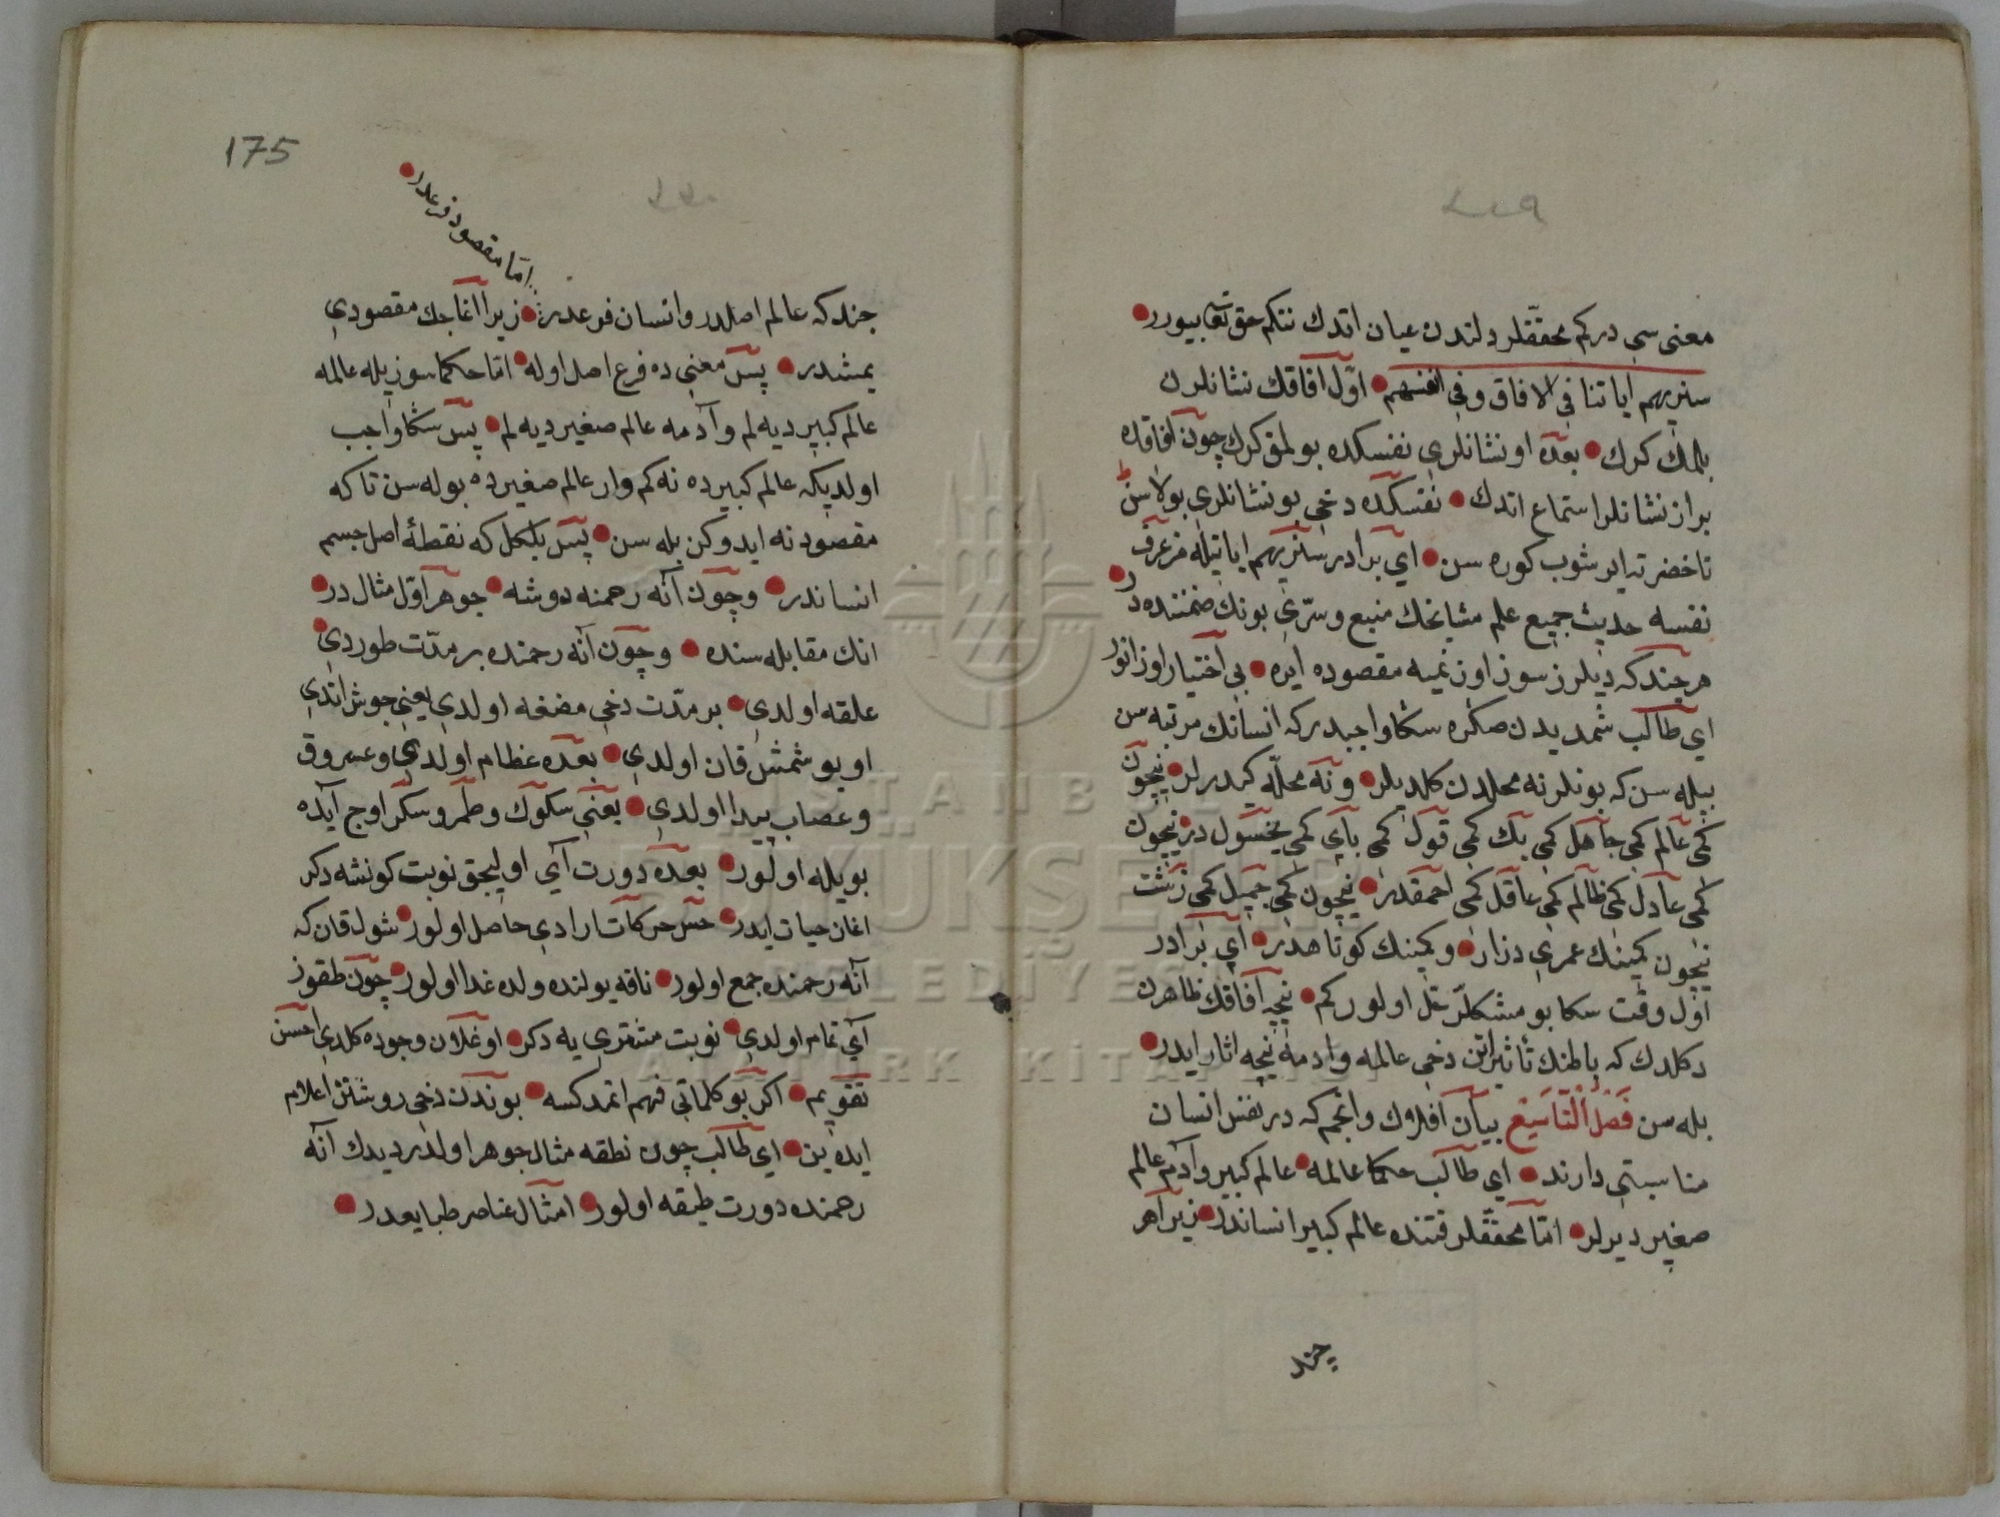 معنی سی درکم محققلر دلندن عیان اتدك نتکم حق تعا بیورر
سنریهم ایاتنا فی الافاق وفی انفسهم اوّل آفاقك نشانلرن
بلمك کرك بعده او نشانلری نفسکده بولمق کرك چون آفاقده
براز نشانلر استماع اتدك نفسکده دخی بو نشانلری بولاسن
تا حضرته ایرشوب کوره سن ای برادر سنریهم ایاتیله من عرف
نفسه حدیث جمیع علم مشایخك منبع وسرّی بونك ضمننده در
هر چند که دیلرز سوز اوزنمیه مقصوده ایره بی اختیار اوزانور
ای طالب شمدیدن صکره سکا واجبدر که انسانك مرتبه سن
بیله سن که بونلر نه محلدن کلدیلر ونه محلّه کیدرلر نیچون
کمی عالم کمی جاهل کمی بك کمی قول کمی بای کمی یخسول در نیچون
کمی عادل کمی ظالم کمی عاقل کمی احمقدر نیچون کمی جمیل کمی زشت
نیچون کمینك عمری دراز وکمینك کوتاهدر ای برادر
اول وقت سکا بو مشکلر حل اولور کم نیچه آفاقك ظاهرن
دکلدك که باطنك تأثیراتن دخی عالمه وادمه نیچه اثار ایدر
بله سن فصل التاسیع بیان افلاك وانجم که در نفس انسان
مناسبتی دارند ای طالب حکما عالمه عالم کبیر وآدم عالم
صغیر دیرلر امّا محققلر قتنده عالم کبیر انساندر زیرا هر
چند
175
امّا مقصود فرعدر
چند که عالم اصلدر وانسان فرعدر زیرا آغاجك مقصودی
یمشدر پس معنی ده فرع اصل اوله امّا حکما سوزیله عالمه
عالم کبیر دیه لم وآدمه عالم صغیر دیه لم پس سکا واجب
اولدیکه عالم کبیرده نه کم وار عالم صغیرده بوله سن تا که
مقصود نه ایدوکن بله سن پس بلکل که نقطهٔ اصل جسم
انساندر وچون آنه رحمنه دوشه جوهر اوّل مثال در
انك مقابله سنده وچون آنه رحمنده بر مدّت طوردی
علقه اولدی بر مدّت دخی مضغه اولدی یعنی جوش اتدی
اویوشمش قان اولدی بعده عظام اولدی وعروق
وعصاب پیدا اولدی یعنی سکوك وطمر وسکر اوج آیده
بویله اولور بعده دورت آی اولیجق نوبت کونشه دکر
اغان حیات ایدر حس حرکات ارادی حاصل اولور شول قان که
آنه رحمنده جمع اولور نافه یولنده ولده غدا اولور چون طقوز
آی تمام اولدی نوبت مشتری یه دکر اوغلان وجوده کلدی احسن
تقویم اکر بو کلماتی فهم اتمدکسه بوندن دخی روشنتر اعلام
ایده ین ای طالب چون نطقه مثال جوهر اولدر دیدك آنه
رحمنده دورت طبقه اولور امثال عناصر طبایعدر